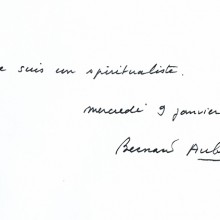 e suis un spiritualiste.
mercredi 9 janvier
Bernard Aub